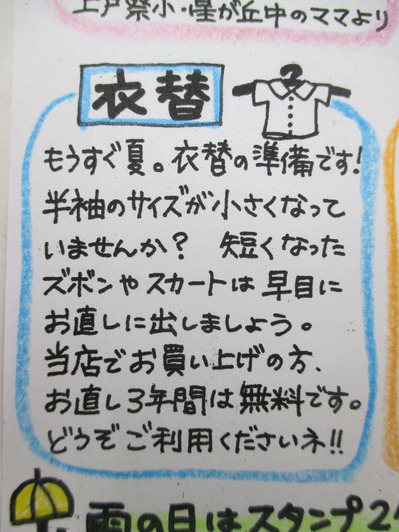 上戸祭小・星が丘中のママより
衣替
もうすぐ夏。衣替の準備です!
半袖のサイズが小さくなって
いませんか? 短くなった
ズボンやスカートは早目に
お直しに出しましょう。
当店でお買い上げの方、
お直し3年間は無料です。
どうぞご利用くださいネ!!
雨の日はスタンプ2